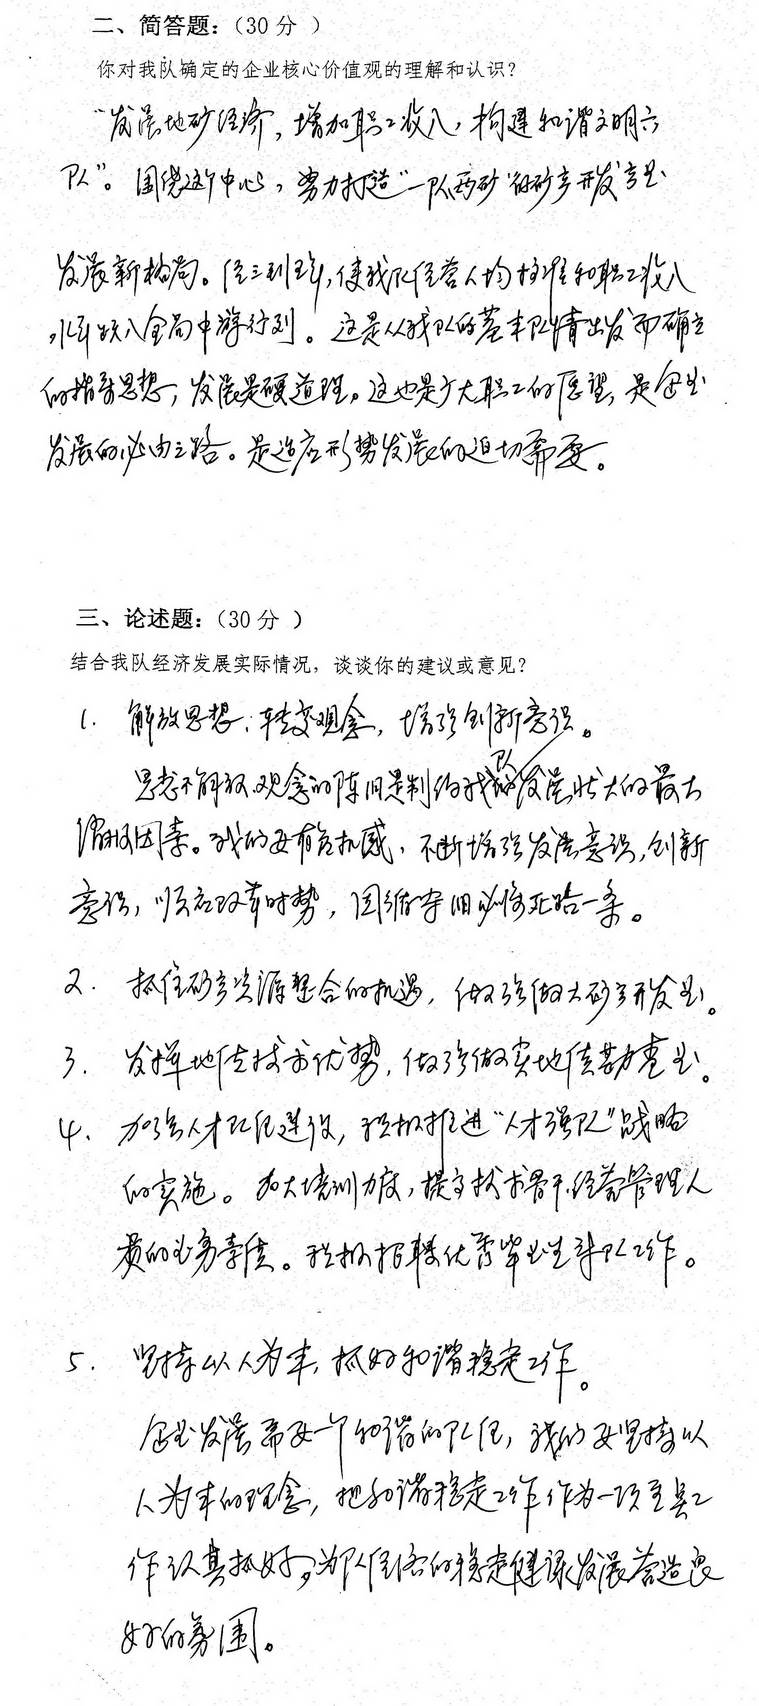 二、简答题：（30 分 ）
你对我队确定的企业核心价值观的理解和认识？
“发展地矿经济，增加职工收入，构建和谐文明六
队”。围绕这个中心，努力打造“一队两矿”的矿产开发产业
发展新格局。经三到五年，使我队经营人均指标和职工收入
水平跃入全局中游行列。这是从我队的基本队情出发而确立
的指导思想，发展是硬道理。这也是广大职工的愿望，是企业
发展的必由之路。是适应形势发展的迫切需要。
三、论述题：（30 分 ）
结合我队经济发展实际情况，谈谈你的建议或意见？
1. 解放思想、转变观念，增强创新意识。
思想不解放、观念的陈旧是制约我队发展壮大的最大
消极因素。我们要有危机感，不断增强发展意识，创新
意识，顺应改革时势，因循守旧必将死路一条。
2. 抓住矿产资源整合的机遇，做强做大矿产开发业。
3. 发挥地质技术优势，做强做实地质勘查业。
4. 加强人才队伍建设，积极推进“人才强队”战略
的实施。加大培训力度，提高技术骨干、经营管理人
员的业务素质。积极招聘优秀毕业生到队工作。
5. 坚持以人为本，抓好和谐稳定工作。
企业发展需要一个和谐的队伍，我们要坚持以
人为本的理念，把和谐稳定工作作为一项重要工
作认真抓好，为队经济的稳定健康发展营造良
好的氛围。